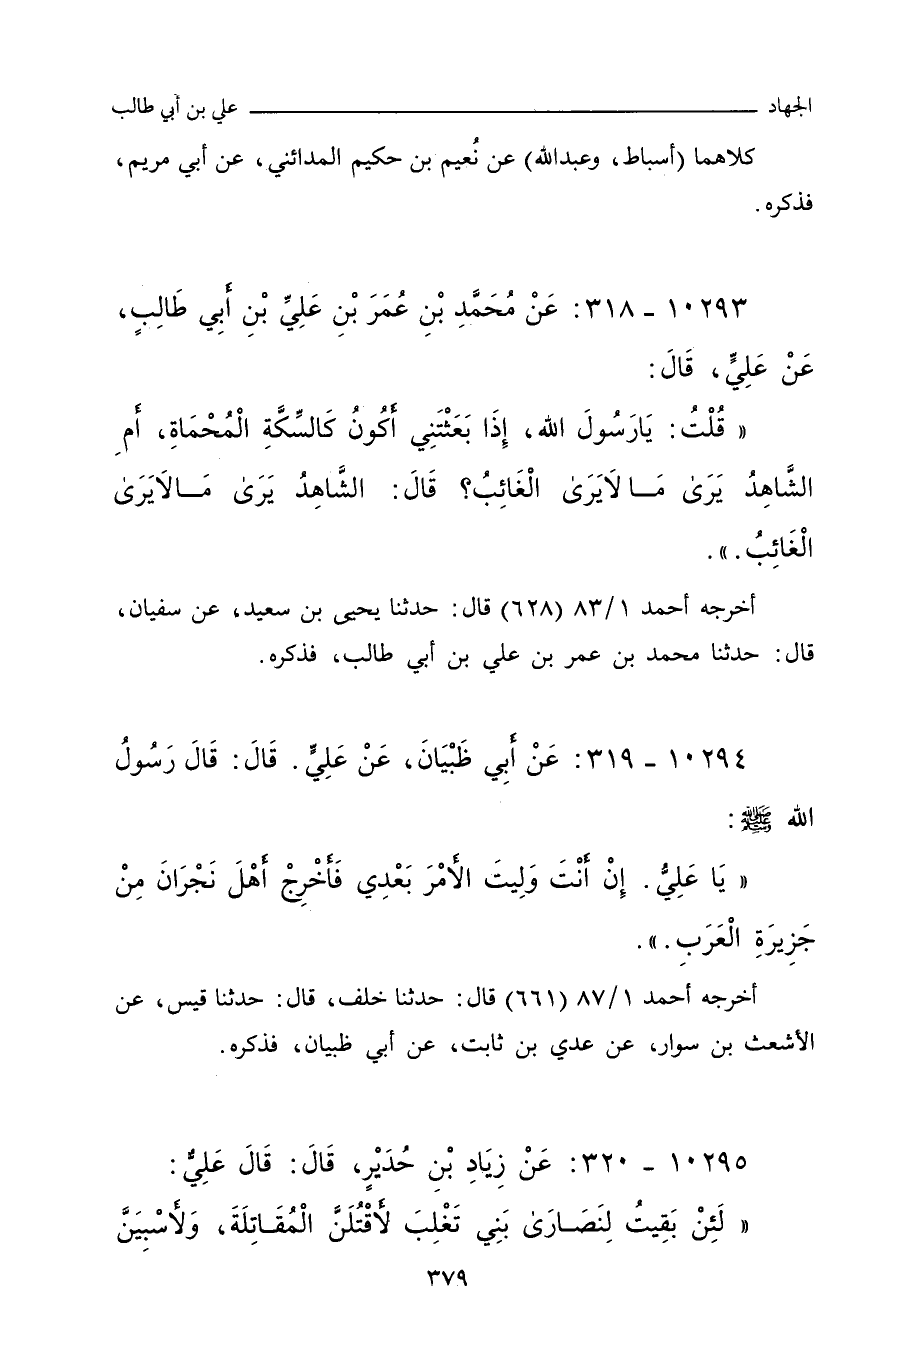 الجهاد ــــــــــــــــــــ علي بن أبي طالب
كلاهما (أسباط، وعبدالله) عن نُعيم بن حكيم المدائني، عن أبي مريم،
فذكره.
١٠٢٩٣ - ٣١٨: عَنْ مُحَمَّدِ بْنِ عُمَرَ بْنِ عَلِيِّ بْنِ أَبِي طَالِبٍ،
عَنْ عَلِيٍّ، قَالَ:
« قُلْتُ: يَارَسُولَ الله، إِذَا بَعَثْتَنِي أَكُونُ كَالسِّكَّةِ الْمُحْمَاةِ، أَمِ
الشَّاهِدُ يَرَىٰ مَـا لَايَرَىٰ الْغَائِبُ؟ قَالَ: الشَّاهِدُ يَرَىٰ مَـالَايَرَىٰ
الْغَائِبُ.».
أخرجه أحمد ٨٣/١ (٦٢٨) قال: حدثنا يحيى بن سعيد، عن سفيان،
قال: حدثنا محمد بن عمر بن علي بن أبي طالب، فذكره.
١٠٢٩٤ - ٣١٩: عَنْ أَبِي ظَبْيَانَ، عَنْ عَلِيٍّ. قَالَ: قَالَ رَسُولُ
الله ﷺ:
« يَا عَلِيُّ. إِنْ أَنْتَ وَلِيتَ الأَمْرَ بَعْدِي فَأَخْرِجْ أَهْلَ نَجْرَانَ مِنْ
جَزِيرَةِ الْعَرَبِ.».
أخرجه أحمد ٨٧/١ (٦٦١) قال: حدثنا خلف، قال: حدثنا قيس، عن
الأشعث بن سوار، عن عدي بن ثابت، عن أبي ظبيان، فذكره.
١٠٢٩٥ - ٣٢٠: عَنْ زِيَادِ بْنِ حُدَيْرٍ، قَالَ: قَالَ عَلِيٌّ:
« لَئِنْ بَقِيتُ لِنَصَـارَىٰ بَنِي تَغْلِبَ لَأَقْتُلَنَّ الْمُقَـاتِلَةَ، وَلَأَسْبِيَنَّ
٣٧٩